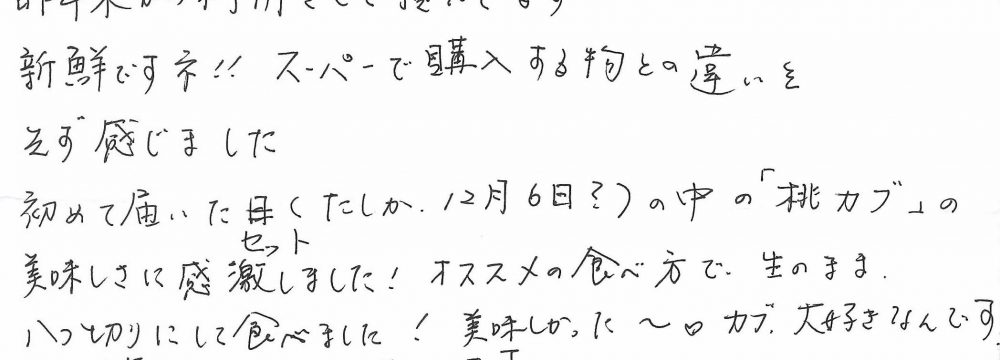 新鮮ですネ!! スーパーで購入する物との違いを
まず感じました
初めて届いた(たしか、12月6日?)の中の「桃カブ」の
セット
美味しさに感激しました! オススメの食べ方で、生のまま、
八つ切りにして食べました! 美味しかった〜。カブ、大好きなんです